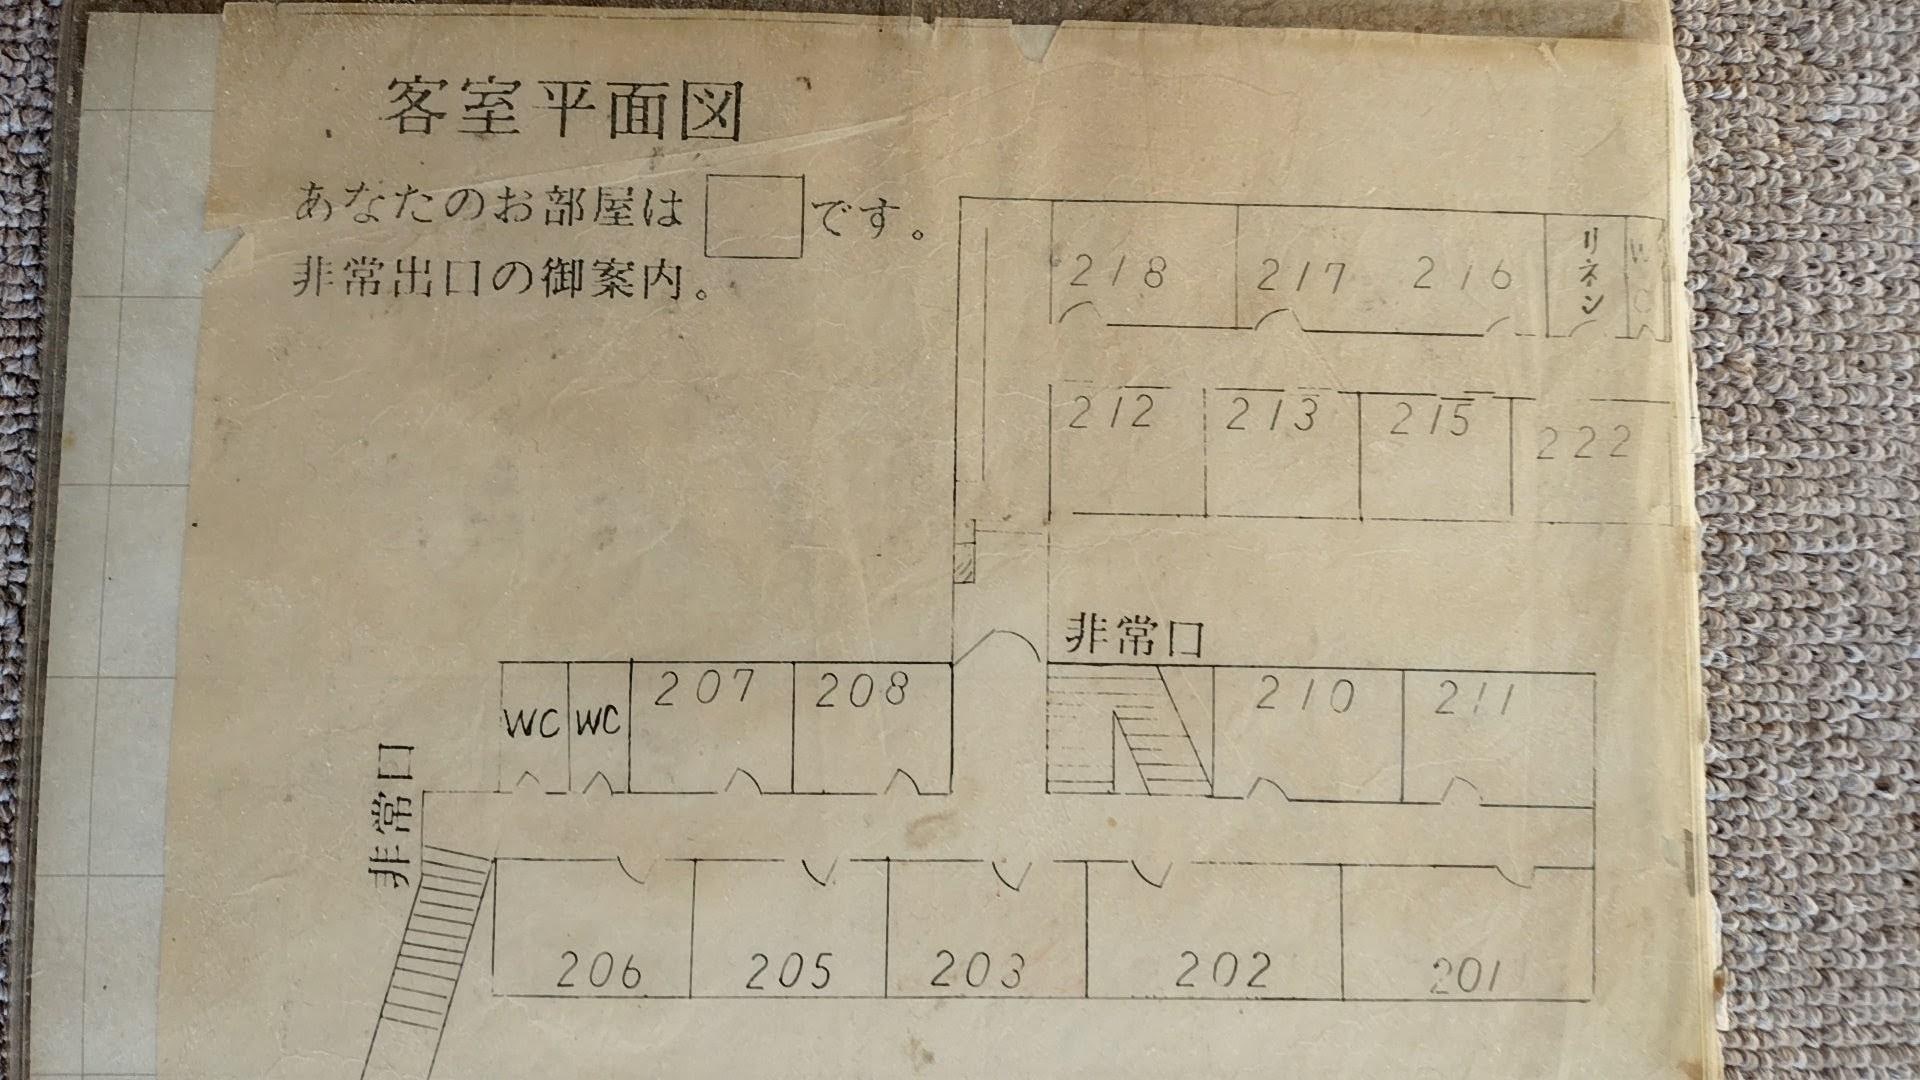 客室平面図
あなたのお部屋は
です。
非常出口の御案内。
218
217
216
リネン
WC
212
213
215
222
非常口
WC
WC
207
208
210
211
非常口
206
205
203
202
201